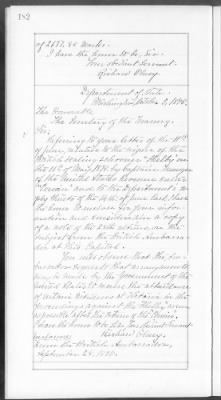 182
of 2657.80 Marks.
I have the honor to be, Sir,
Your obedient Servant,
Richard Olney.
Department of State,
Washington, October 2, 1895.
The Honorable
The Secretary of the Treasury.
Sir:
Referring to your letter of the 11th
of June, relative to the seizure of the
British sealing schooner "Shelby" on
the 11th of May 1895, by Captain
of the United States Revenue cutter
"Corwin" and to the Department's re-
ply thereto of the 14th of June last, I have
the honor to enclose for your infor-
mation and consideration a copy
of a note of the 28th ultimo, on the
subject from the British Ambassa-
dor at this Capital.
You will observe that the
requests that arrangements
may be made by the Government of the
United States to secure the attendance
of certain witnesses at Victoria in the
proceedings against the Shelby as soon
as possible after the return of the "Corwin".
I have the honor to be, Sir, Your obedient Servant
Richard Olney.
Enclosure:
From the British Ambassador,
September 28, 1895.